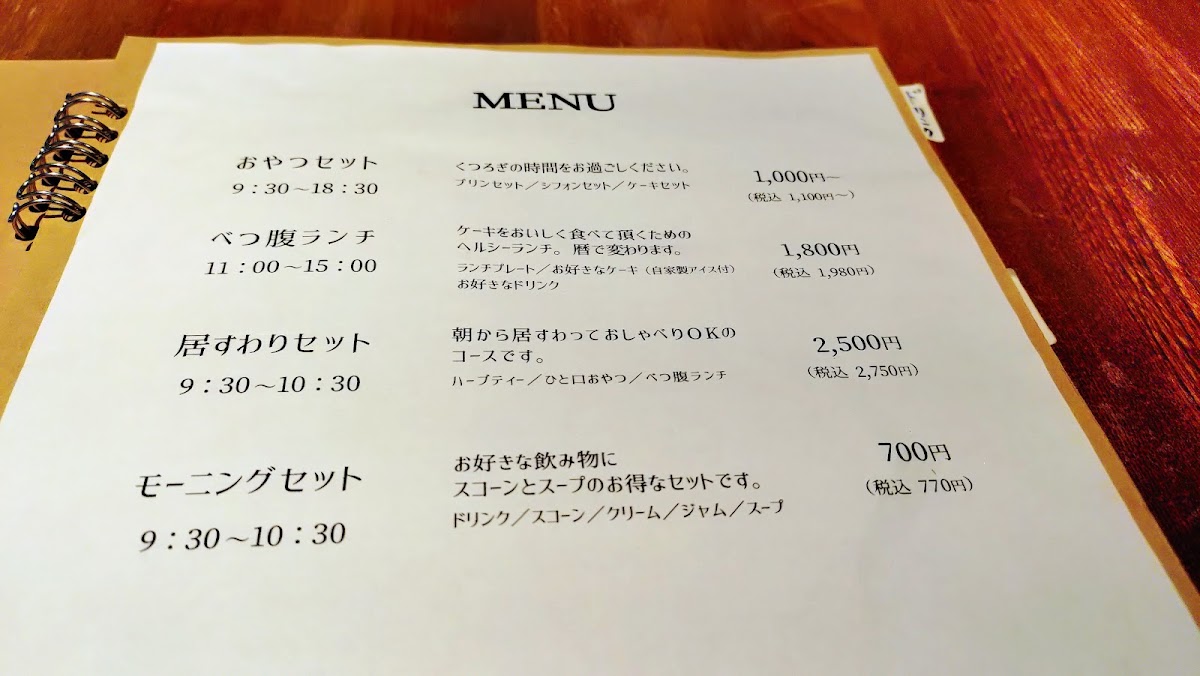 MENU
おやつセット
9：30～18：30
くつろぎの時間をお過ごしください。
プリンセット／シフォンセット／ケーキセット
1,000円～
（税込 1,100円～）
べつ腹ランチ
11：00～15：00
ケーキをおいしく食べて頂くための
ヘルシーランチ。暦で変わります。
ランチプレート／お好きなケーキ（自家製アイス付）
お好きなドリンク
1,800円
（税込 1,980円）
居すわりセット
9：30～10：30
朝から居すわっておしゃべりOKの
コースです。
ハーブティー／ひと口おやつ／べつ腹ランチ
2,500円
（税込 2,750円）
モーニングセット
9：30～10：30
お好きな飲み物に
スコーンとスープのお得なセットです。
ドリンク／スコーン／クリーム／ジャム／スープ
700円
（税込 770円）